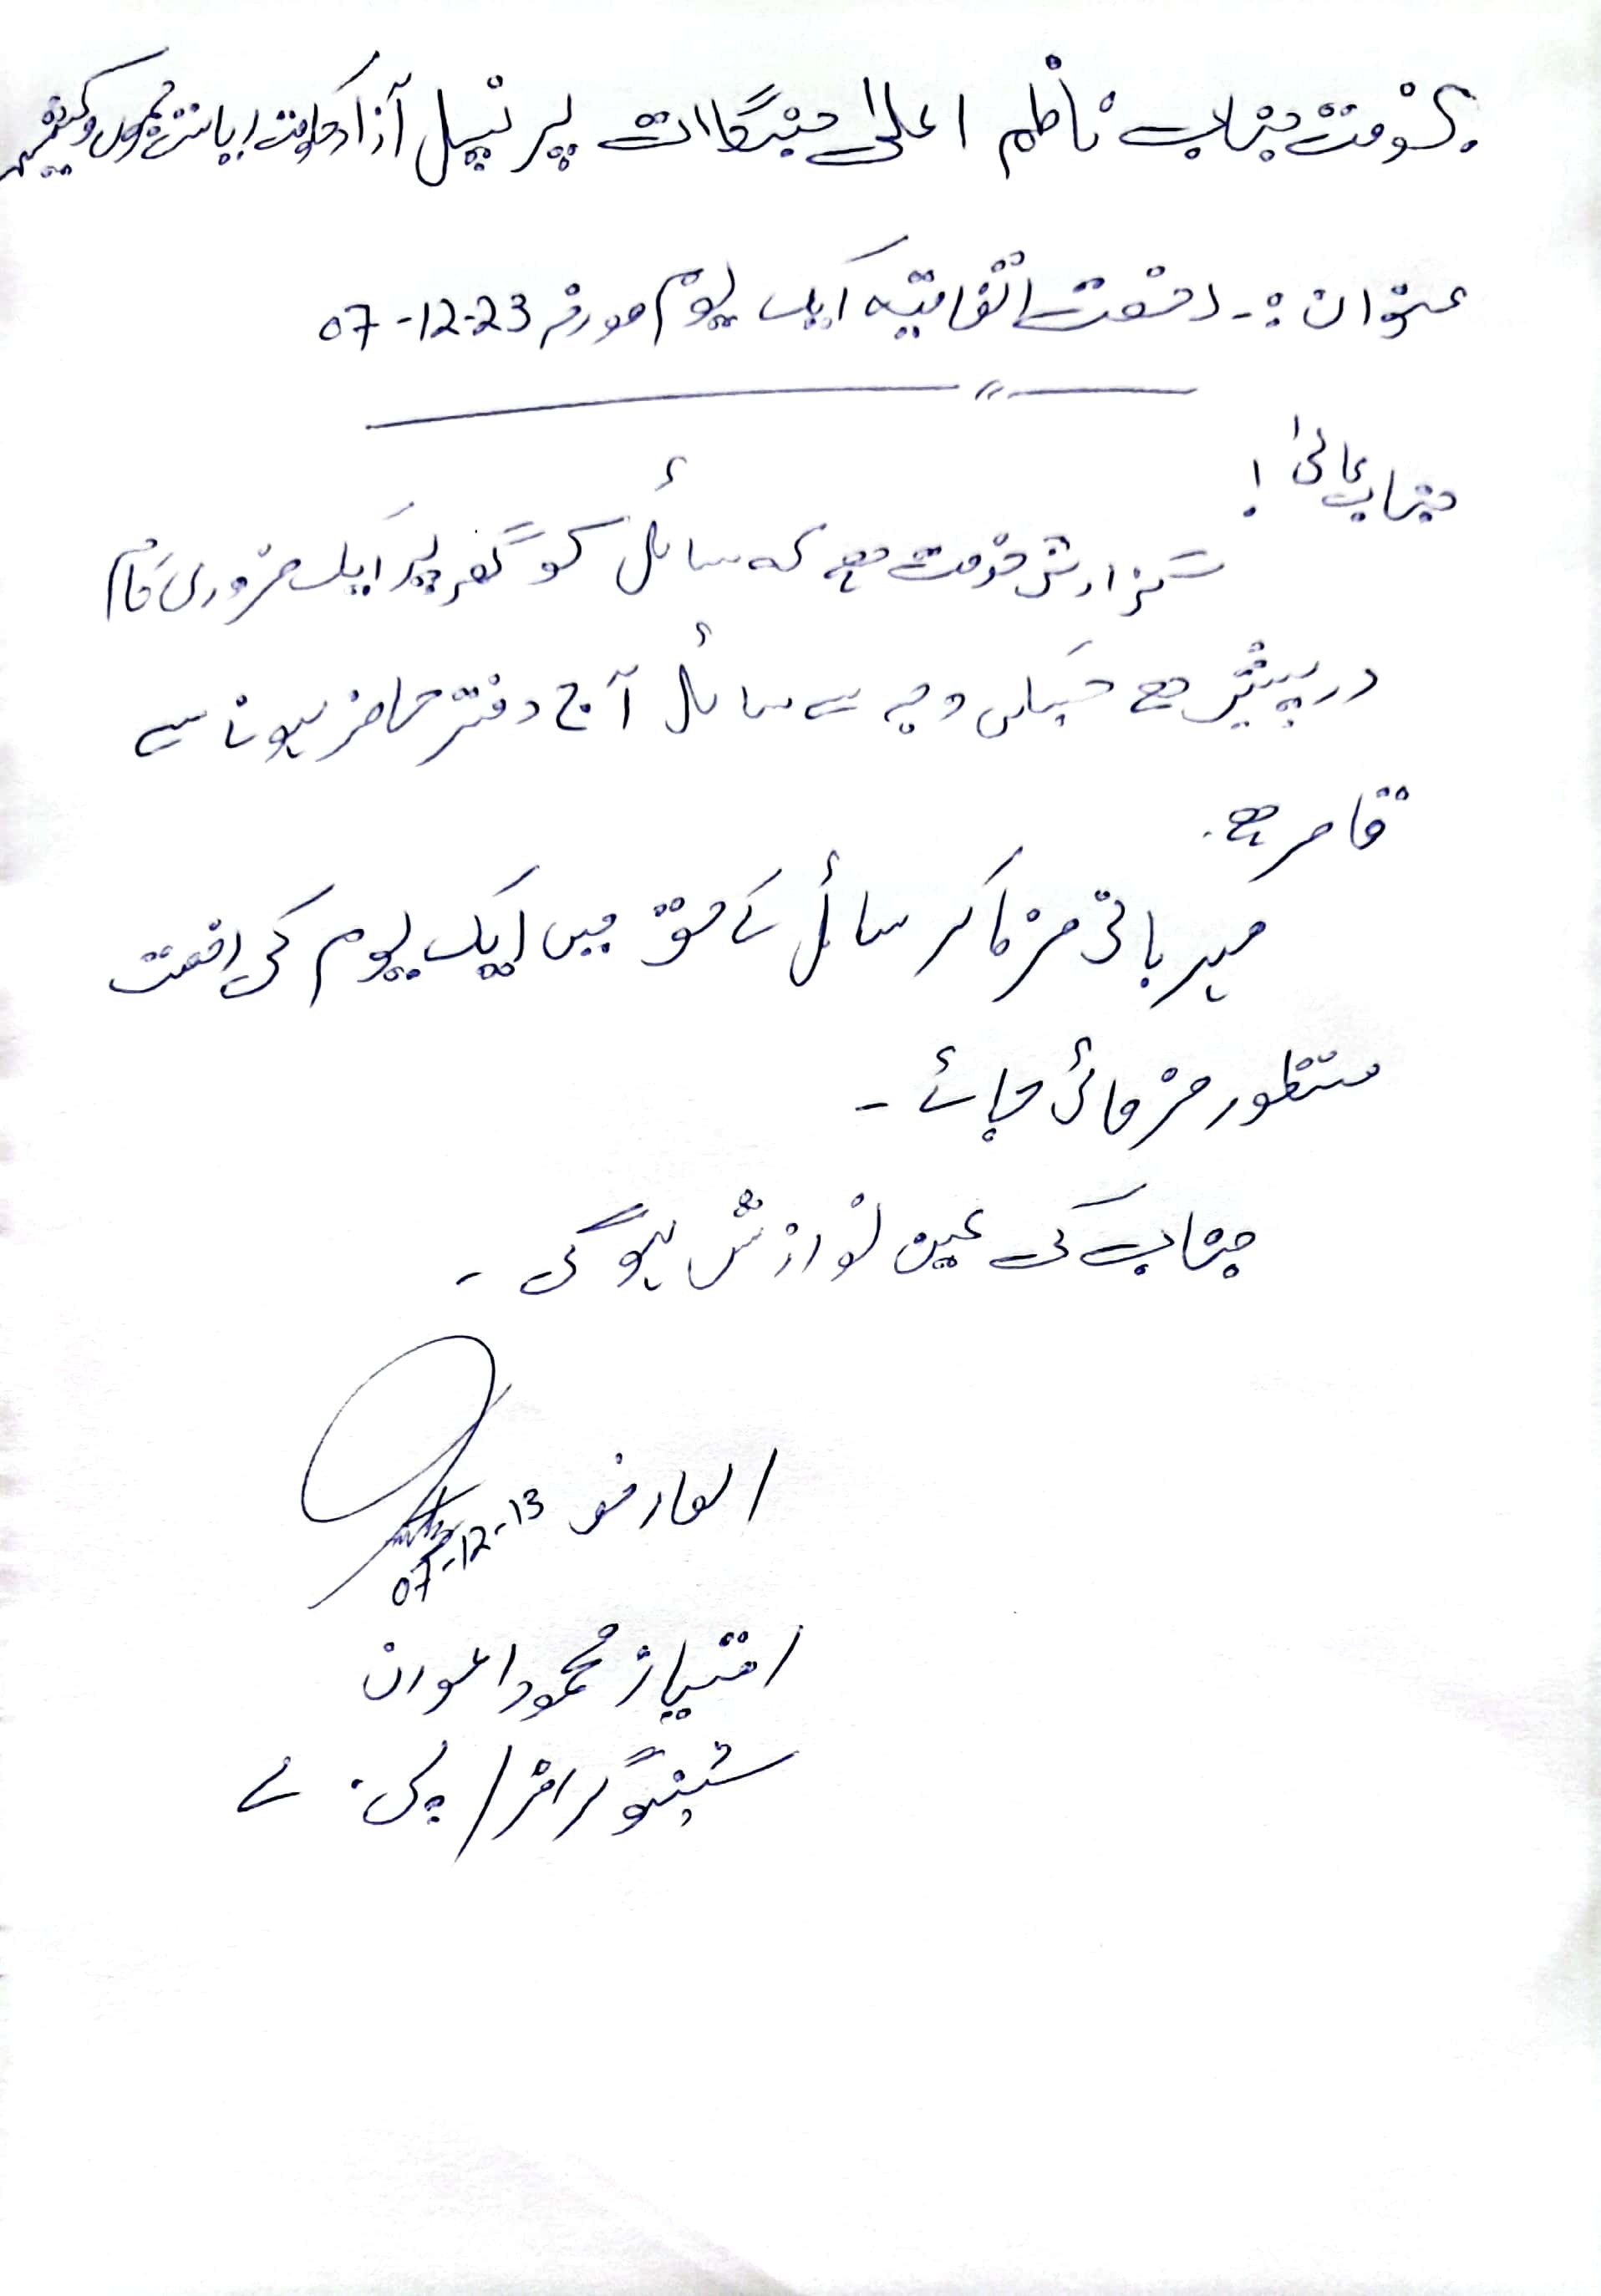 بخدمت جناب ناظم اعلیٰ جنگلات پرنسپل آزاد حکومت ریاست جموں و کشمیر
عنوان :۔ رخصت اتفاقیہ ایک یوم مورخہ 07-12-23
جناب عالی !
گزارش خدمت ہے کہ سائل کو گھر پر ایک ضروری کام
درپیش ہے جسکی وجہ سے سائل آج دفتر حاضر ہونا سے
قاصر ہے۔
مہربانی فرما کر سائل کے حق میں ایک یوم کی رخصت
منظور فرمائی جائے ۔
جناب کی عین نوازش ہو گی ۔
العارض 07-12-13
امتیاز محمود اعوان
سٹینوگرافر / پی. اے